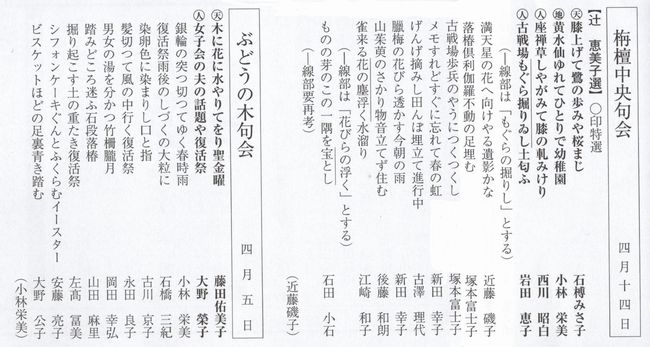 栴檀中央句会 四月十四日
【辻 恵美子選】 〇印特選
㊝天 膝上げて鷺の歩みや桜まじ 石榑みさ子
地 黄水仙ゆれてひとりで幼稚園 小林 栄美
人 座禅草しやがみて膝の軋みけり 西川 昭白
人 古戦場もぐら掘りゐし土匂ふ 岩田 恵子
(―線部は「もぐらの掘りし」とする)
満天星の花へ向けやる遺影かな 近藤 磯子
落椿倶利伽羅不動の足埋む 塚本富士子
古戦場歩兵のやうにつくつくし 塚本富士子
メモすれどすぐに忘れて春の虹 新田 幸子
げんげ摘みし田んぼ埋立て進行中 古澤 理代
臘梅の花びら透かす今朝の雨 新田 幸子
山茱萸のさかり物音立てず住む 後藤 和朗
雀来る花の塵浮く水溜り 江崎 和子
(―線部は「花びらの浮く」とする)
ものの芽のこの一隅を宝とし 石田 小石
(―線部要再考)
(近藤磯子)
ぶどうの木句会 四月五日
天 木に花に水やりてをり聖金曜 藤田佑美子
人 女子会の夫の話題や復活祭 大野 榮子
銀輪の突つ切つてゆく春時雨 小林 栄美
復活祭雨後のしづくの大粒に 石橋 三紀
染卵色に染まりし口と指 古川 京子
髪切つて風の中行く復活祭 永田 良子
男女の湯を分かつ竹柵朧月 岡田 幸弘
踏みどころ迷ふ石段落椿 山田 麻里
掘り起こす土の重たき復活祭 左髙 冨美
シフォンケーキぐんとふくらむイースター 安藤 亮子
ビスケットほどの足裏青き踏む 大野 公子
(小林栄美)